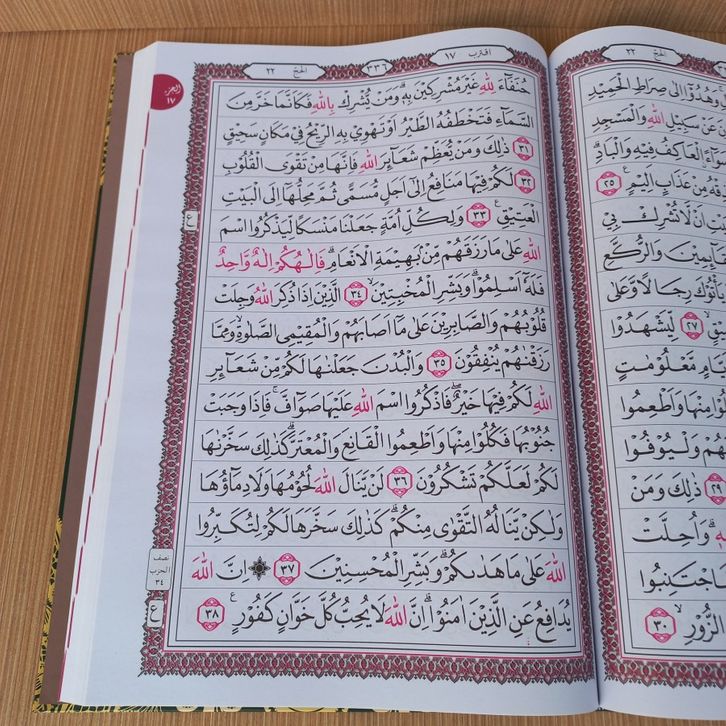 الحج ٢٢
وَهُدُوٓا اِلٰى صِرَاطِ الْحَمِيدِ
عَنْ سَبٖيلِ اللّٰهِ وَالْمَسْجِدِ
الْعَاكِفُ فٖيهِ وَالْبَادِ
مِنْ عَذَابٍ اَلٖيمٍ ٢٥
اَنْ لَا تُشْرِكْ بٖي
وَالرُّكَّعِ
رِجَالًا وَعَلٰى
٢٧ لِيَشْهَدُوا
مَعْلُومَاتٍ
مِنْهَا وَاَطْعِمُوا
وَلْيُوفُوا
٢٩ ذٰلِكَ وَمَنْ
وَاُحِلَّتْ
اجْتَنِبُوا
الزُّورِ ٣٠
اقترب ١٧ ٣٣٦ الحج ٢٢
الجزء
١٧
حُنَفَٓاءَ لِلّٰهِ غَيْرَ مُشْرِكٖينَ بِهٖ وَمَنْ يُشْرِكْ بِاللّٰهِ فَكَاَنَّمَا خَرَّ مِنَ
السَّمَٓاءِ فَتَخْطَفُهُ الطَّيْرُ اَوْ تَهْوٖي بِهِ الرّٖيحُ فٖي مَكَانٍ سَحٖيقٍ
٣١ ذٰلِكَ وَمَنْ يُعَظِّمْ شَعَٓائِرَ اللّٰهِ فَاِنَّهَا مِنْ تَقْوَى الْقُلُوبِ
٣٢ لَكُمْ فٖيهَا مَنَافِعُ اِلٰٓى اَجَلٍ مُسَمًّى ثُمَّ مَحِلُّهَٓا اِلَى الْبَيْتِ
الْعَتٖيقِ ٣٣ وَلِكُلِّ اُمَّةٍ جَعَلْنَا مَنْسَكًا لِيَذْكُرُوا اسْمَ
اللّٰهِ عَلٰى مَا رَزَقَهُمْ مِنْ بَهٖيمَةِ الْاَنْعَامِ فَاِلٰهُكُمْ اِلٰهٌ وَاحِدٌ
فَلَهُٓ اَسْلِمُوا وَبَشِّرِ الْمُخْبِتٖينَ ٣٤ الَّذٖينَ اِذَا ذُكِرَ اللّٰهُ وَجِلَتْ
قُلُوبُهُمْ وَالصَّابِرٖينَ عَلٰى مَٓا اَصَابَهُمْ وَالْمُقٖيمِي الصَّلٰوةِ وَمِمَّا
رَزَقْنَاهُمْ يُنْفِقُونَ ٣٥ وَالْبُدْنَ جَعَلْنَاهَا لَكُمْ مِنْ شَعَٓائِرِ
اللّٰهِ لَكُمْ فٖيهَا خَيْرٌ فَاذْكُرُوا اسْمَ اللّٰهِ عَلَيْهَا صَوَٓافَّ فَاِذَا وَجَبَتْ
جُنُوبُهَا فَكُلُوا مِنْهَا وَاَطْعِمُوا الْقَانِعَ وَالْمُعْتَرَّ كَذٰلِكَ سَخَّرْنَاهَا
لَكُمْ لَعَلَّكُمْ تَشْكُرُونَ ٣٦ لَنْ يَنَالَ اللّٰهَ لُحُومُهَا وَلَا دِمَٓاؤُهَا
وَلٰكِنْ يَنَالُهُ التَّقْوٰى مِنْكُمْ كَذٰلِكَ سَخَّرَهَا لَكُمْ لِتُكَبِّرُوا
اللّٰهَ عَلٰى مَا هَدٰيكُمْ وَبَشِّرِ الْمُحْسِنٖينَ ٣٧ اِنَّ اللّٰهَ
يُدَافِعُ عَنِ الَّذٖينَ اٰمَنُوا اِنَّ اللّٰهَ لَا يُحِبُّ كُلَّ خَوَّانٍ كَفُورٍ ٣٨
ع
نصف
الحزب
٣٤
ع